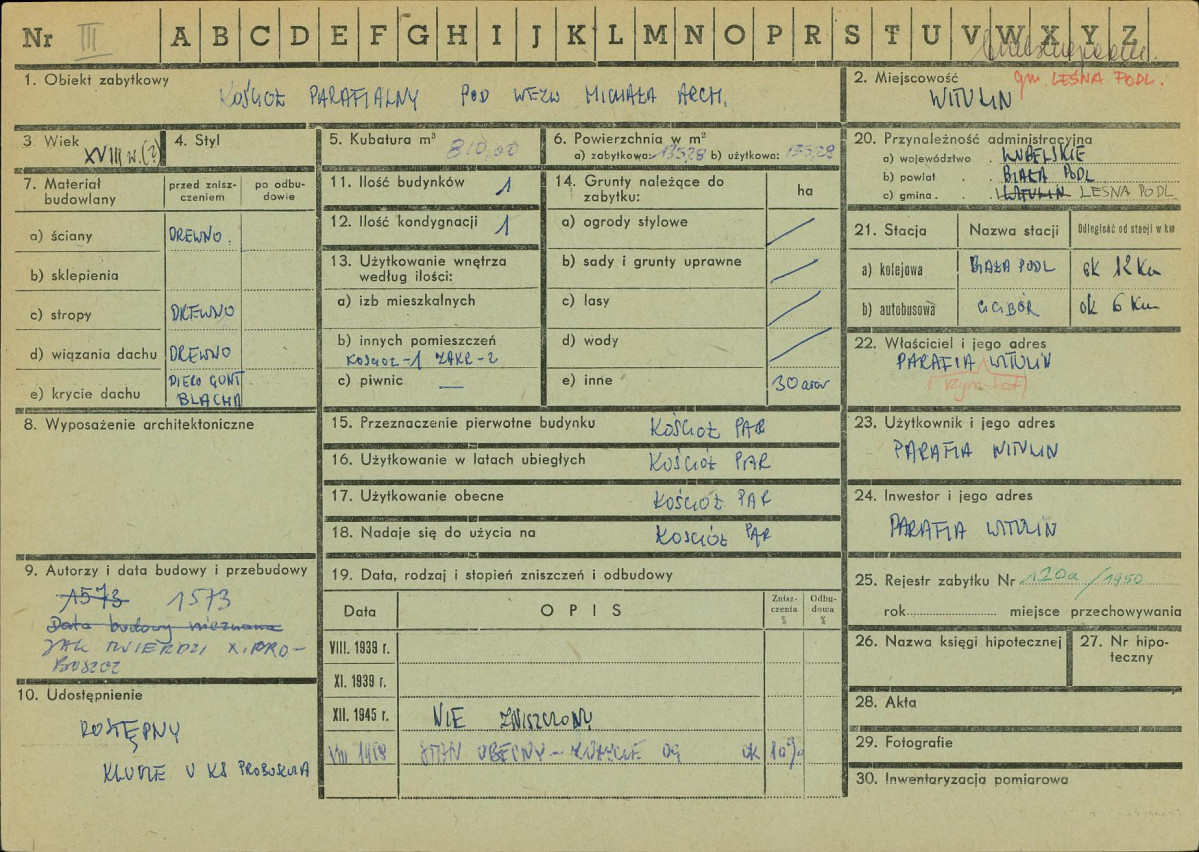 Nr III A B C D E F G H I J K L M N O P R S T U V W X Y Z
1. Obiekt zabytkowy
KOŚCIÓŁ PARAFIALNY POD WEZW MICHAŁA ARCH.
2. Miejscowość gm. LEŚNA PODL.
WITULIN
3 Wiek XVIII w. (?)
4. Styl
5. Kubatura m³ 810,00
6. Powierzchnia w m²
a) zabytkowa: 135,28 b) użytkowa: 135,28
7. Materiał budowlany
przed znisz-
czeniem
po odbu-
dowie
a) ściany DREWNO.
b) sklepienia
c) stropy DREWNO
d) wiązania dachu DREWNO
e) krycie dachu GONT
BLACHA
8. Wyposażenie architektoniczne
9. Autorzy i data budowy i przebudowy
1573 1573
Data budowy nieznana
JAK TWIERDZI X. PRO-
BOSZCZ
10. Udostępnienie
DOSTĘPNY
KLUCZE U KS PROBOSZCZA
11. Ilość budynków 1
12. Ilość kondygnacji 1
13. Użytkowanie wnętrza
według ilości:
a) izb mieszkalnych
b) innych pomieszczeń
KOŚCIÓŁ-1 ZAKR-2
c) piwnic —
14. Grunty należące do
zabytku:
ha
a) ogrody stylowe /
b) sady i grunty uprawne /
c) lasy /
d) wody /
e) inne 30 arów
15. Przeznaczenie pierwotne budynku KOŚCIÓŁ PAR
16. Użytkowanie w latach ubiegłych KOŚCIÓŁ PAR
17. Użytkowanie obecne KOŚCIÓŁ PAR
18. Nadaje się do użycia na KOŚCIÓŁ PAR
19. Data, rodzaj i stopień zniszczeń i odbudowy
Data OPIS
Znisz-
czenia
%
Odbu-
dowa
%
VIII. 1939 r.
XI. 1939 r.
XII. 1945 r. NIE ZNISZCZONY
STAN OBECNY – ZUŻYCIE ok 10%
20. Przynależność administracyjna
a) województwo . LUBELSKIE
b) powiat . . BIAŁA PODL
c) gmina . . WITULIN LEŚNA PODL
21. Stacja Nazwa stacji Odległość od stacji w km
a) kolejowa BIAŁA PODL ok 12 Km
b) autobusowa CICIBÓR ok 6 Km
22. Właściciel i jego adres
PARAFIA WITULIN
(rzym-kat)
23. Użytkownik i jego adres
PARAFIA WITULIN
24. Inwestor i jego adres
PARAFIA WITULIN
25. Rejestr zabytku Nr 120a/1950
rok miejsce przechowywania
26. Nazwa księgi hipotecznej
27. Nr hipo-
teczny
28. Akta
29. Fotografie
30. Inwentaryzacja pomiarowa